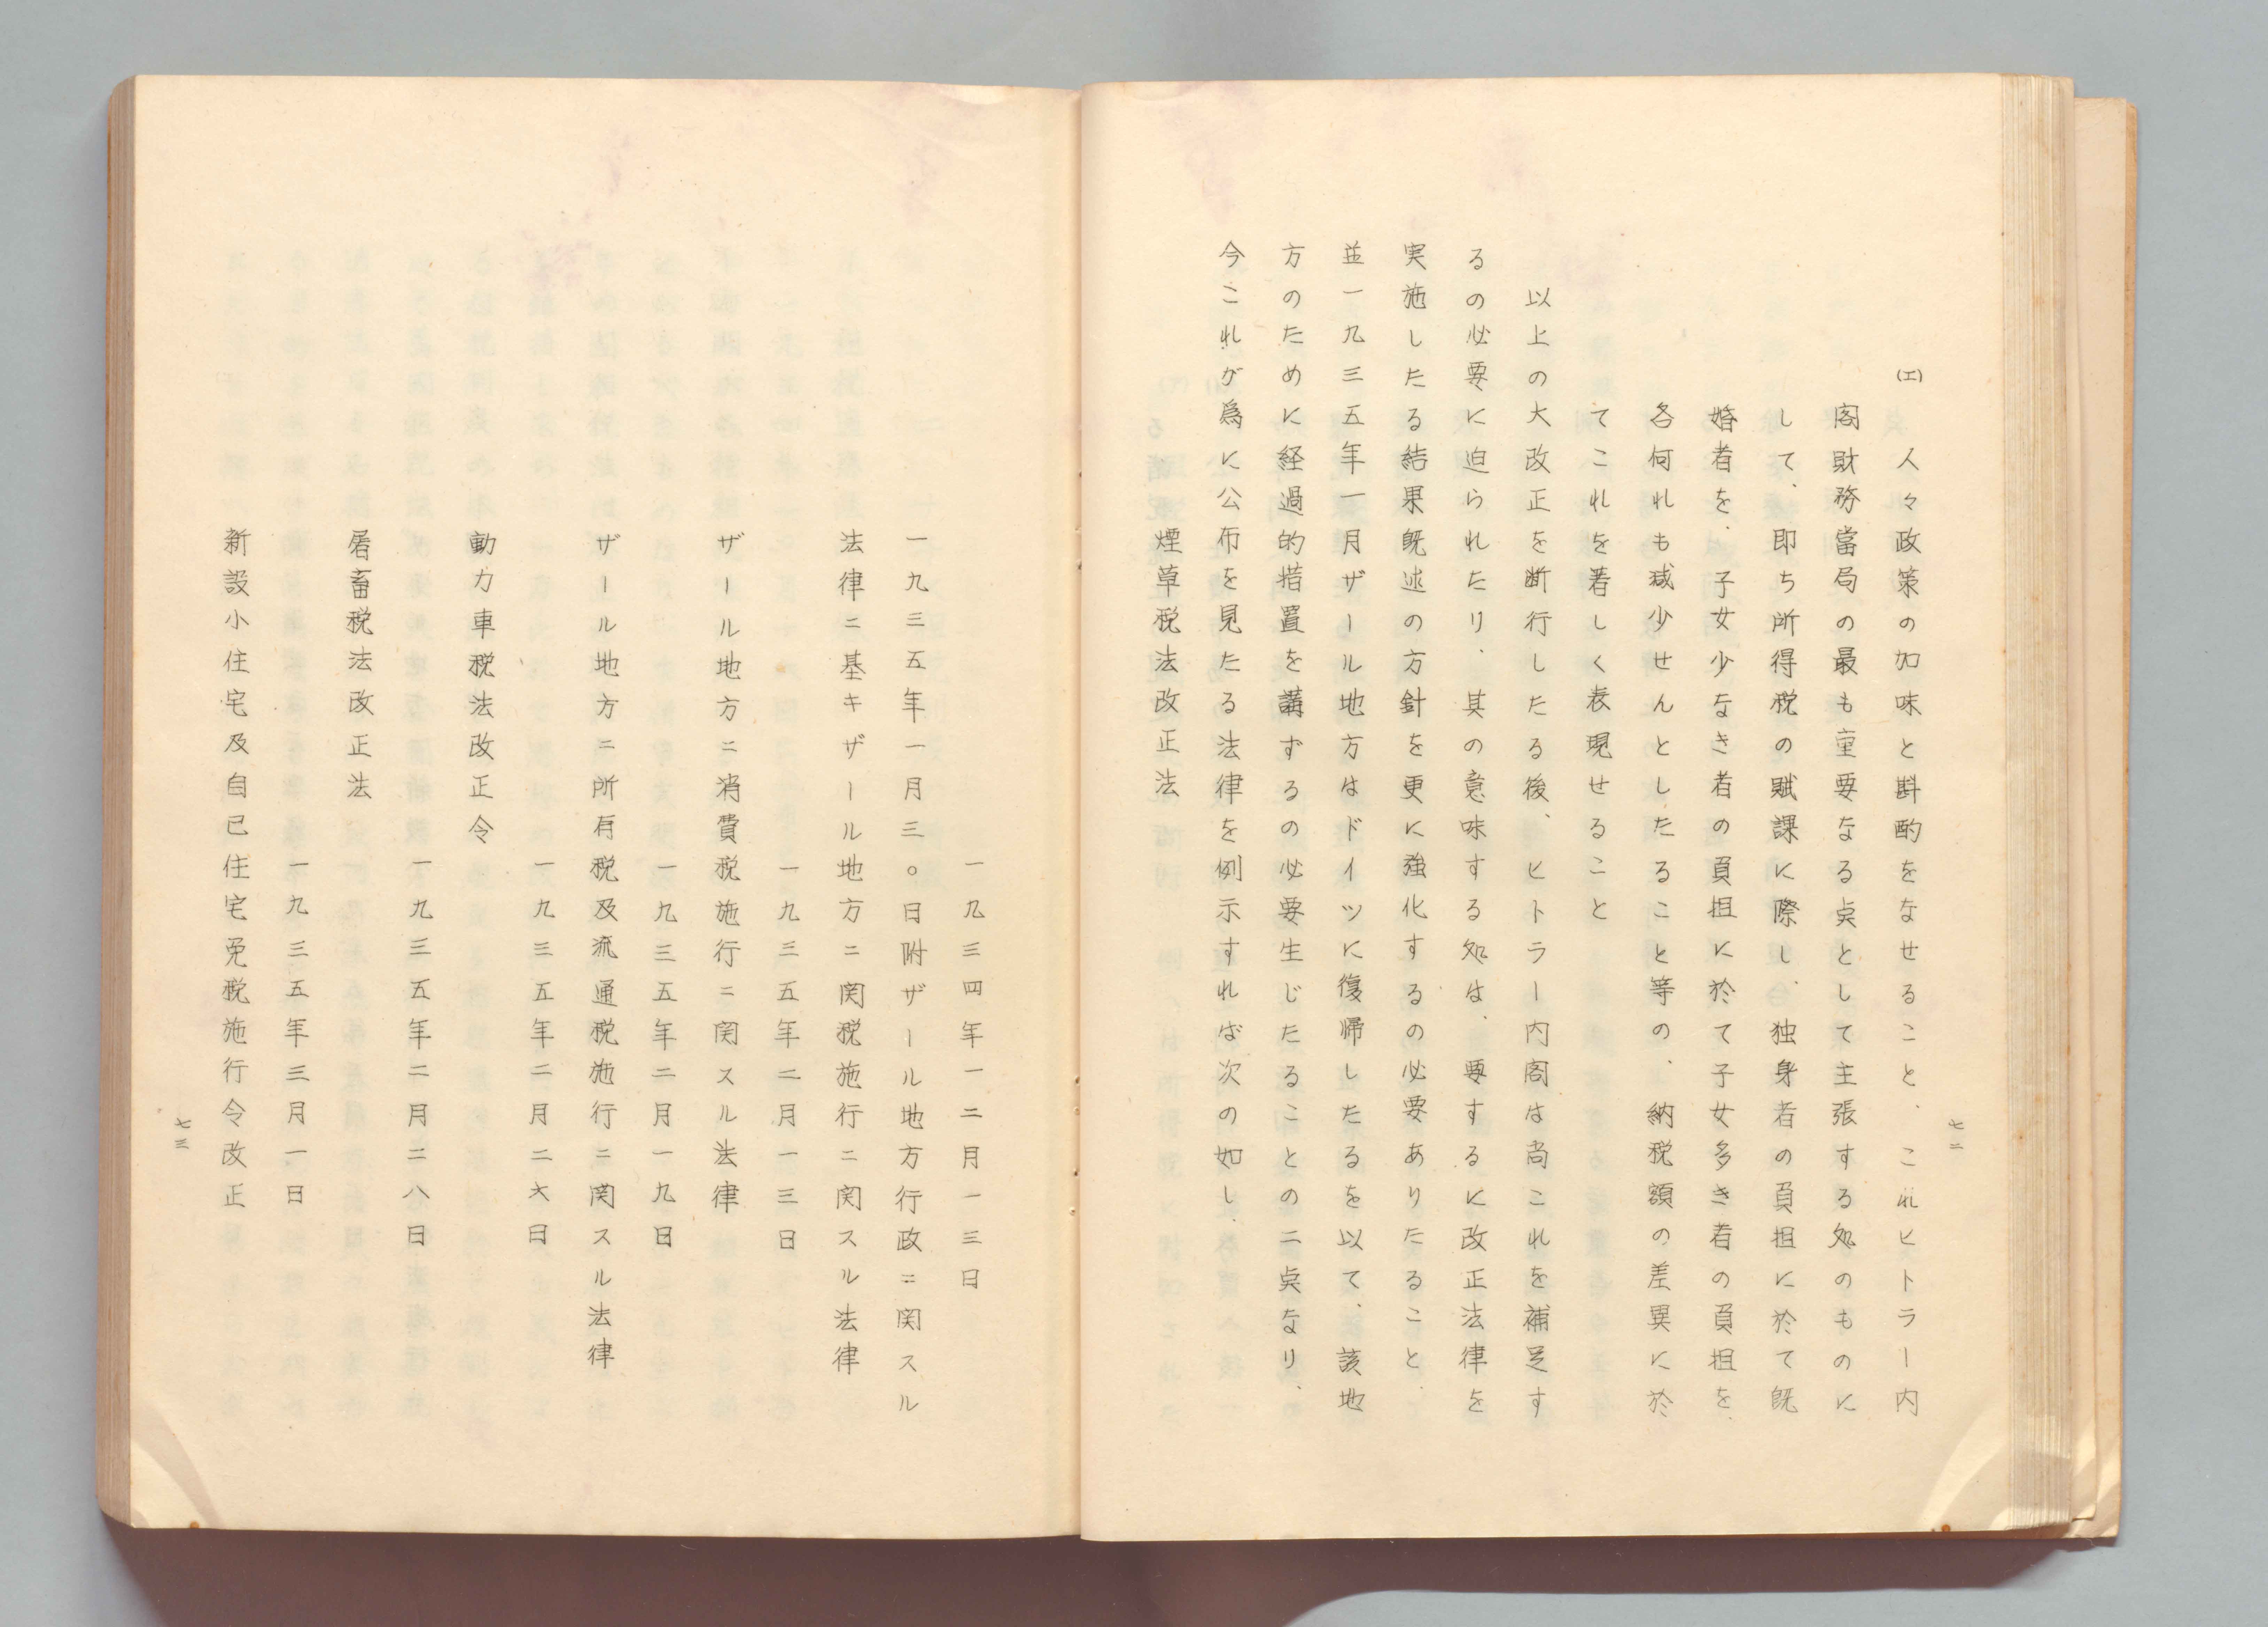 七二
(エ) 人々政策の加味と斟酌をなせること、これヒトラー内
閣財務當局の最も重要なる点として主張する処のものに
して、即ち所得税の賦課に際し、独身者の負担に於て既
婚者を、子女少なき者の負担に於て子女多き者の負担を、
各何れも減少せんとしたること等の、納税額の差異に於
てこれを著しく表現せること
以上の大改正を断行したる後、ヒトラー内閣は尚これを補足す
るの必要に迫られたり、其の意味する処は、要するに改正法律を
実施したる結果既述の方針を更に強化するの必要ありたること、
並一九三五年一月ザール地方はドイツに復帰したるを以て、該地
方のために経過的措置を講ずるの必要生じたることの二点なり、
今これが為に公布を見たる法律を例示すれば次の如し、
煙草税法改正法
一九三四年一二月一三日
一九三五年一月三〇日附ザール地方行政ニ関スル
法律ニ基キザール地方ニ関税施行ニ関スル法律
一九三五年二月一三日
ザール地方ニ消費税施行ニ関スル法律
一九三五年二月一九日
ザール地方ニ所有税及流通税施行ニ関スル法律
一九三五年二月二六日
動力車税法改正令
一九三五年二月二八日
屠畜税法改正法
一九三五年三月一日
新設小住宅及自己住宅免税施行令改正
七三